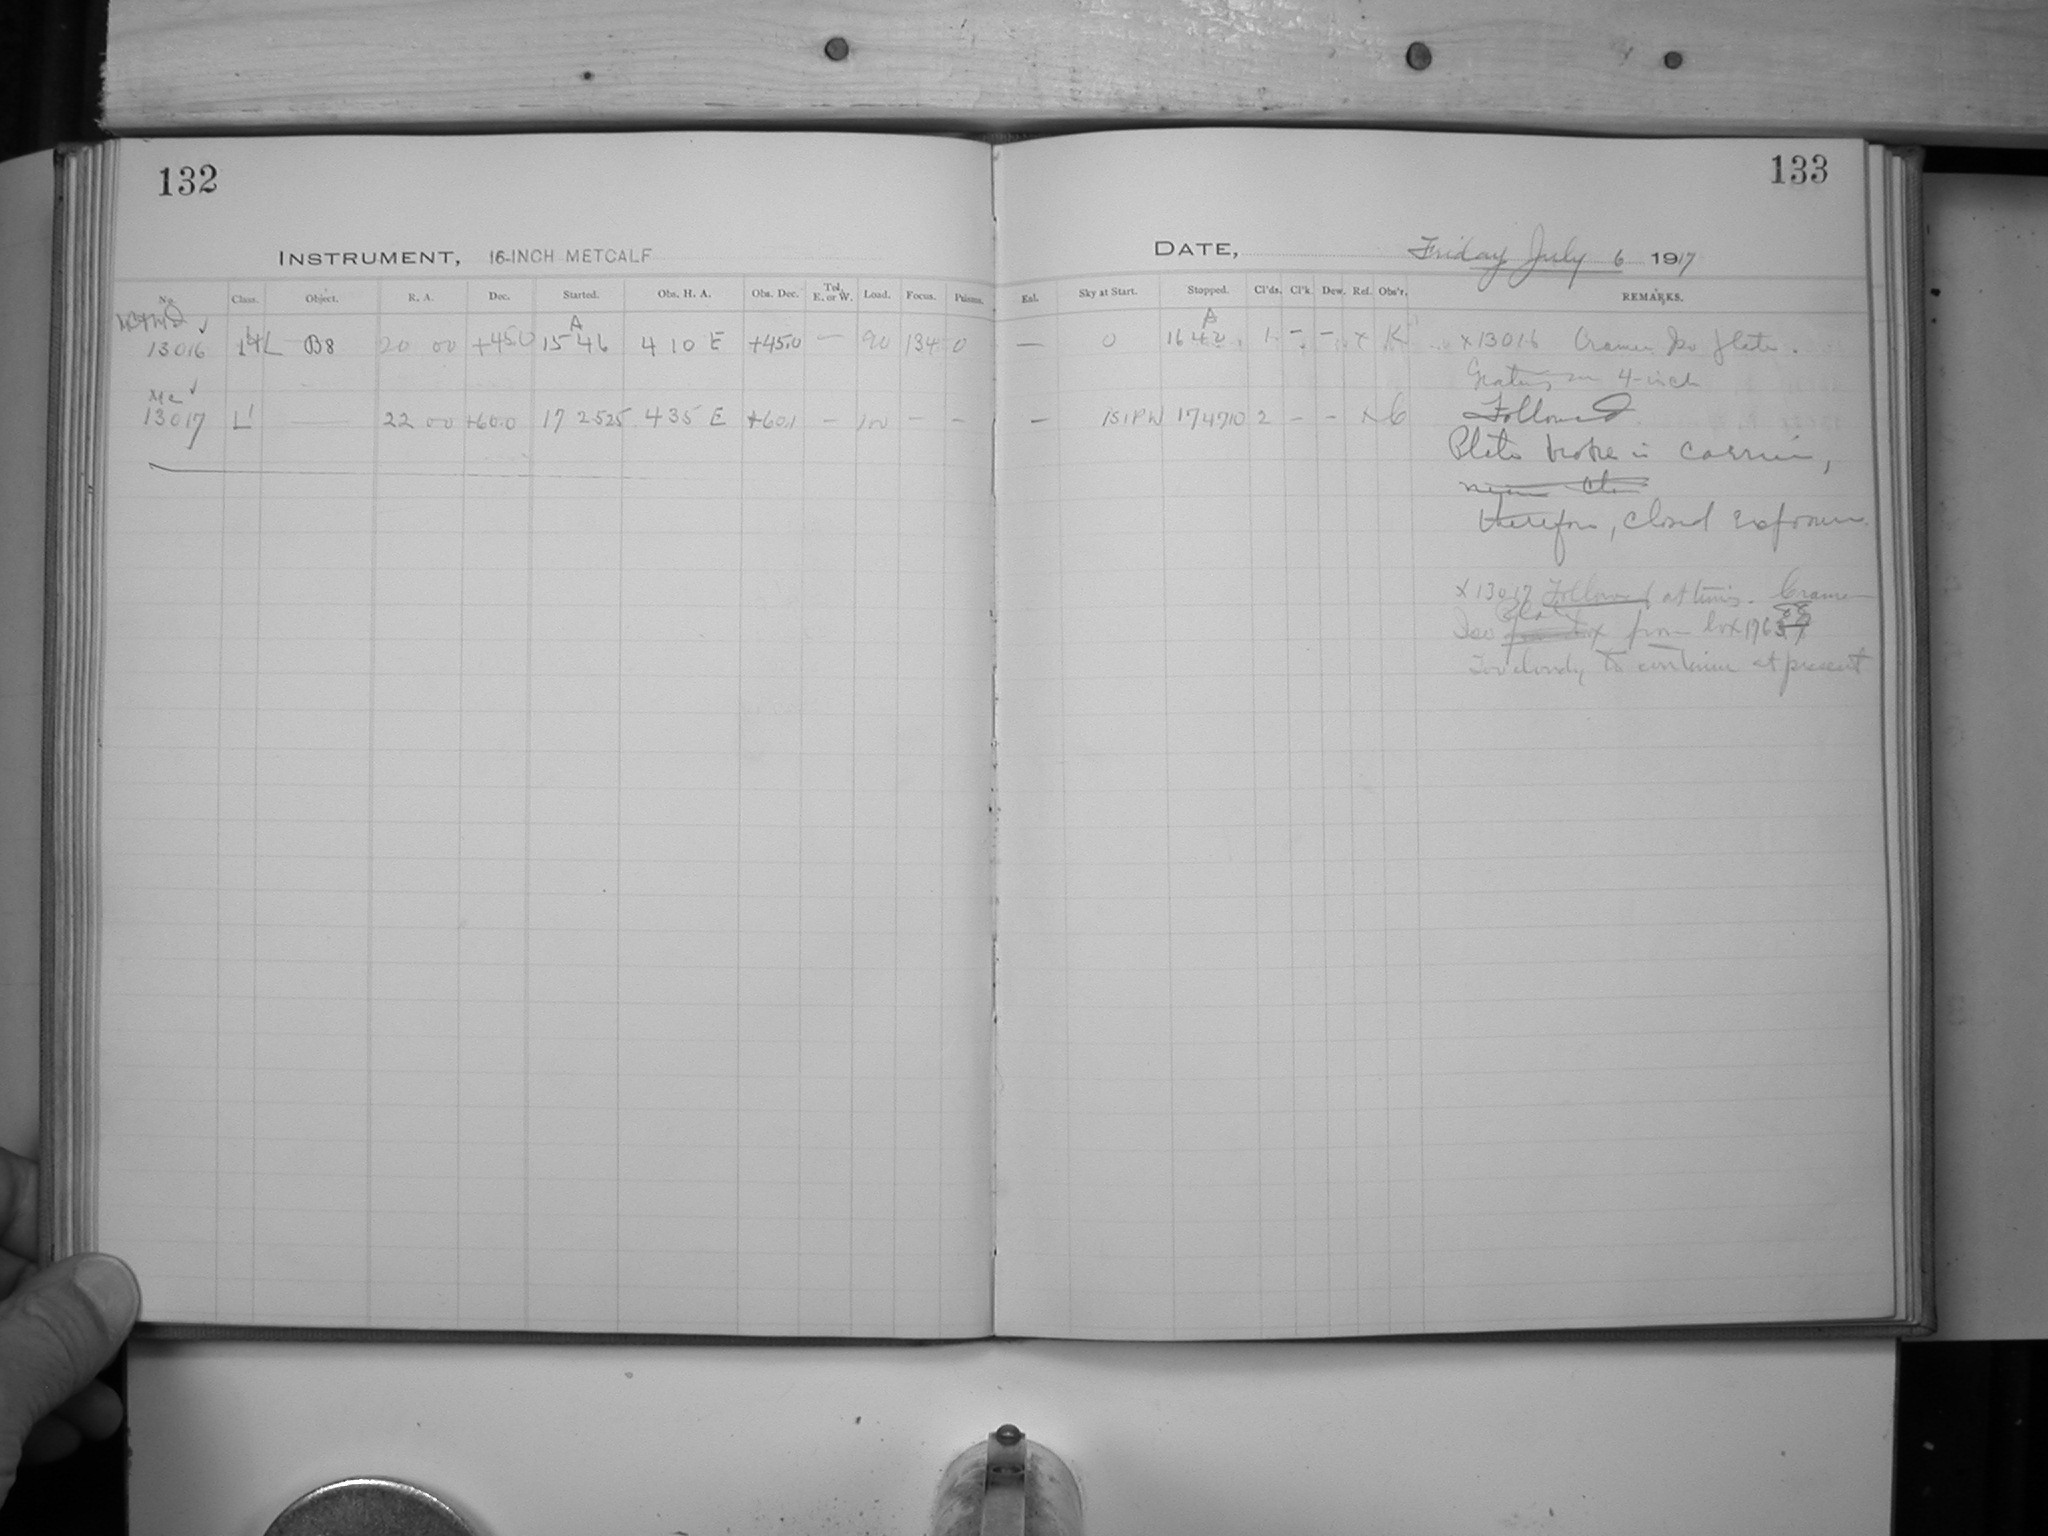 132
133
INSTRUMENT, 16-INCH METCALF
DATE, Friday July 6 1917
No. Class. Object. R. A. Dec. Started. Obs. H. A. Obs. Dec. Tel. E. or W. Load. Focus. Prisms. Eal. Sky at Start. Stopped. Cl'ds. Cl'k. Dew. Ref. Obs'r. REMARKS.
A A
13016 L B8 20 00 +45.0 15 46 4 10 E +45.0 — 90 134 0 — 0 16 42 1 - - x K x13016 Cramer Iso plate.
Grating on 4-inch
Mc
13017 L' — 22 00 +60.0 17 25 25 4 35 E +60.1 — 100 — — — 1S1PW 17 47 10 2 - - x C Followed
Plate broke in carrier,
therefore, closed exposure.
x13017 Followed at times. Cramer
Iso Plate from box 1763
Too cloudy to continue at present